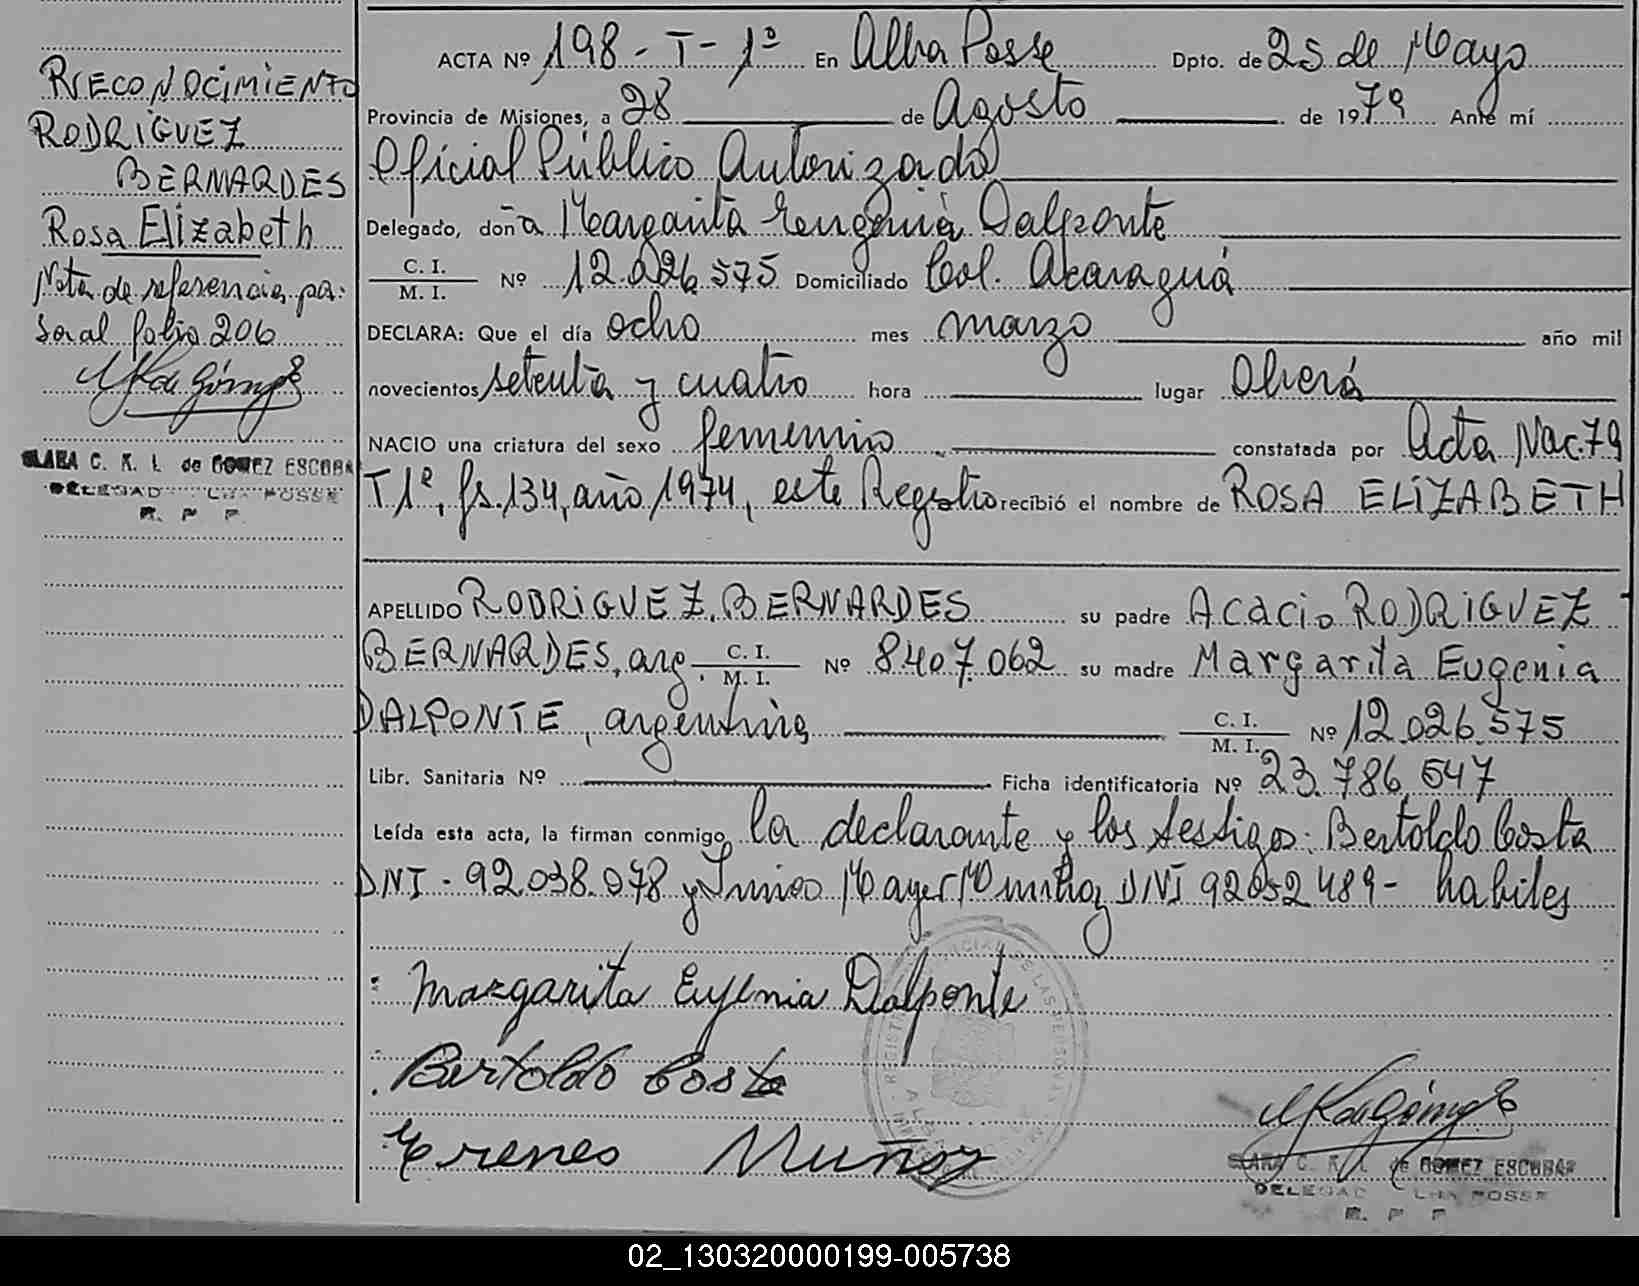 RECONOCIMIENTO
RODRIGUEZ
BERNARDES
Rosa Elizabeth
Nota de referencia pa-
sa al folio 206
CLARA C. K. L. de GOMEZ ESCOBAR
DELEGAD POSSE
R. P P
ACTA Nº 198 - T - 1º En Alba Posse Dpto. de 25 de Mayo
Provincia de Misiones, a 28 de Agosto de 1979 Ante mí
Oficial Público Autorizado
Delegado, doña Margarita Eugenia Dalponte
C. I.
M. I. Nº 12.026.575 Domiciliado Col. Acaraguá
DECLARA: Que el día ocho mes marzo año mil
novecientos setenta y cuatro hora lugar Oberá
NACIO una criatura del sexo femenino constatada por Acta Nac. 79
T 1º, fs. 134, año 1974, este Registro recibió el nombre de ROSA ELIZABETH
APELLIDO RODRIGUEZ BERNARDES su padre Acacio RODRIGUEZ
BERNARDES, arg. C. I. M. I. Nº 8.407.062 su madre Margarita Eugenia
DALPONTE, argentina C. I. M. I. Nº 12.026.575
Libr. Sanitaria Nº Ficha identificatoria Nº 23.786.547
Leída esta acta, la firman conmigo, la declarante y los testigos: Bertoldo Costa
DNI - 92.038.078 y DNI 92052489 - habiles
Margarita Eugenia Dalponte
Bertoldo Costa
Erenes Muñoz
CLARA C. K. L. de GOMEZ ESCOBAR
DELEGAD POSSE
R. P P
02_130320000199-005738